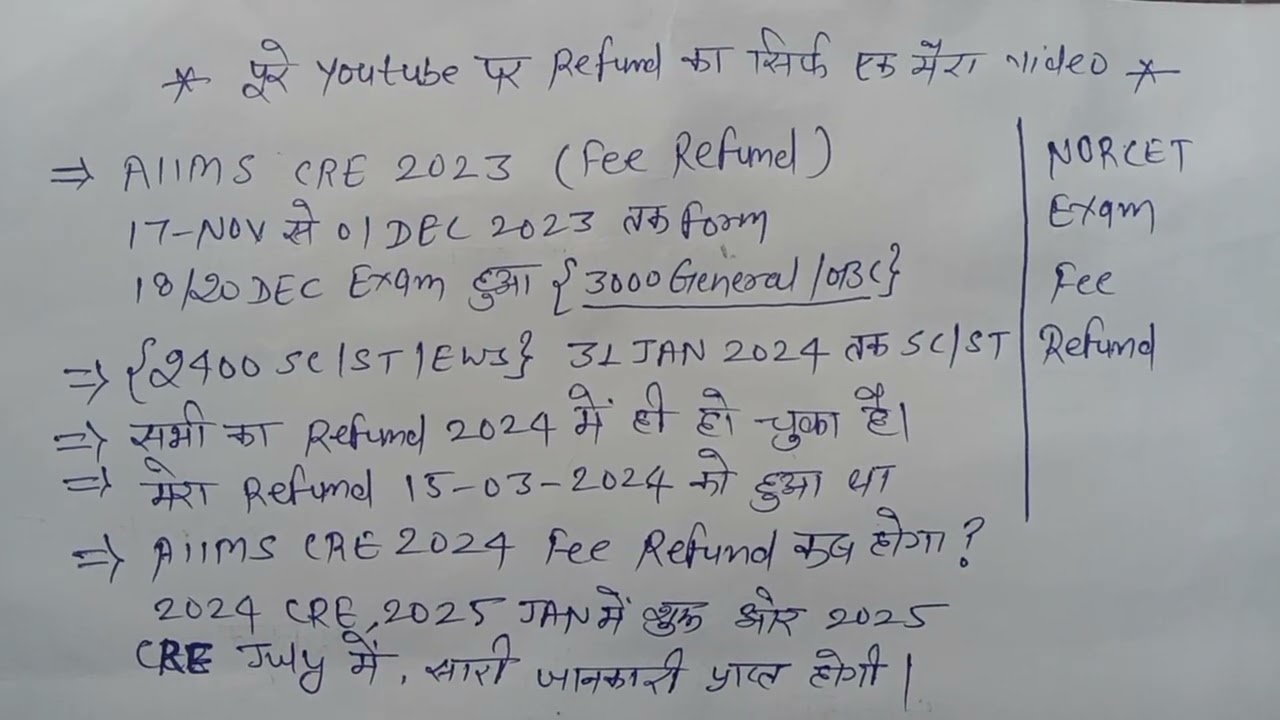 * पूरे Youtube पर Refund का सिर्फ एक मेरा Video *
⇒ AIIMS CRE 2023 (Fee Refund)
17-NOV से 01 DEC 2023 तक form
18/20 DEC Exam हुआ {3000 General/OBC}
⇒ {2400 SC/ST/EWS} 31 JAN 2024 तक SC/ST
⇒ सभी का Refund 2024 में ही हो चुका है।
⇒ मेरा Refund 15-03-2024 को हुआ था
⇒ AIIMS CRE 2024 Fee Refund कब होगा?
2024 CRE, 2025 JAN में शुरू और 2025
CRE July में, सारी जानकारी प्राप्त होगी।
NORCET
Exam
Fee
Refund